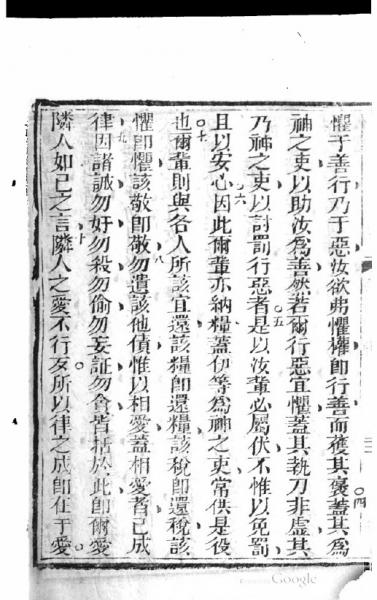 懼于善行乃于惡汝欲弗懼權即行善而獲其褒蓋其爲
四
神之吏以助汝爲善然若爾行惡宜懼蓋其執刀非虛其
五
乃神之吏以討罰行惡者是以汝輩必屬伏不惟以免罰
六
且以安心因此爾輩亦納糧蓋伊等爲神之吏常供是役
七
也爾輩則與各人所該宜還該糧即還糧該稅即還稅該
八
懼即懼該敬即敬勿遺該他債惟以相愛蓋相愛者已成
九
律因諸誡勿奸勿殺勿偷勿妄証勿貪皆括於此即爾愛
十
隣人如己之言隣人之愛不行歹所以律之成即在于愛
Google